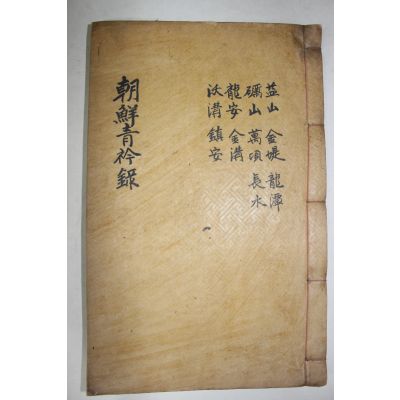 朝鮮青衿錄
益山 金堤 龍潭
礪山 萬頃 長水
龍安 金溝
沃溝 鎮安